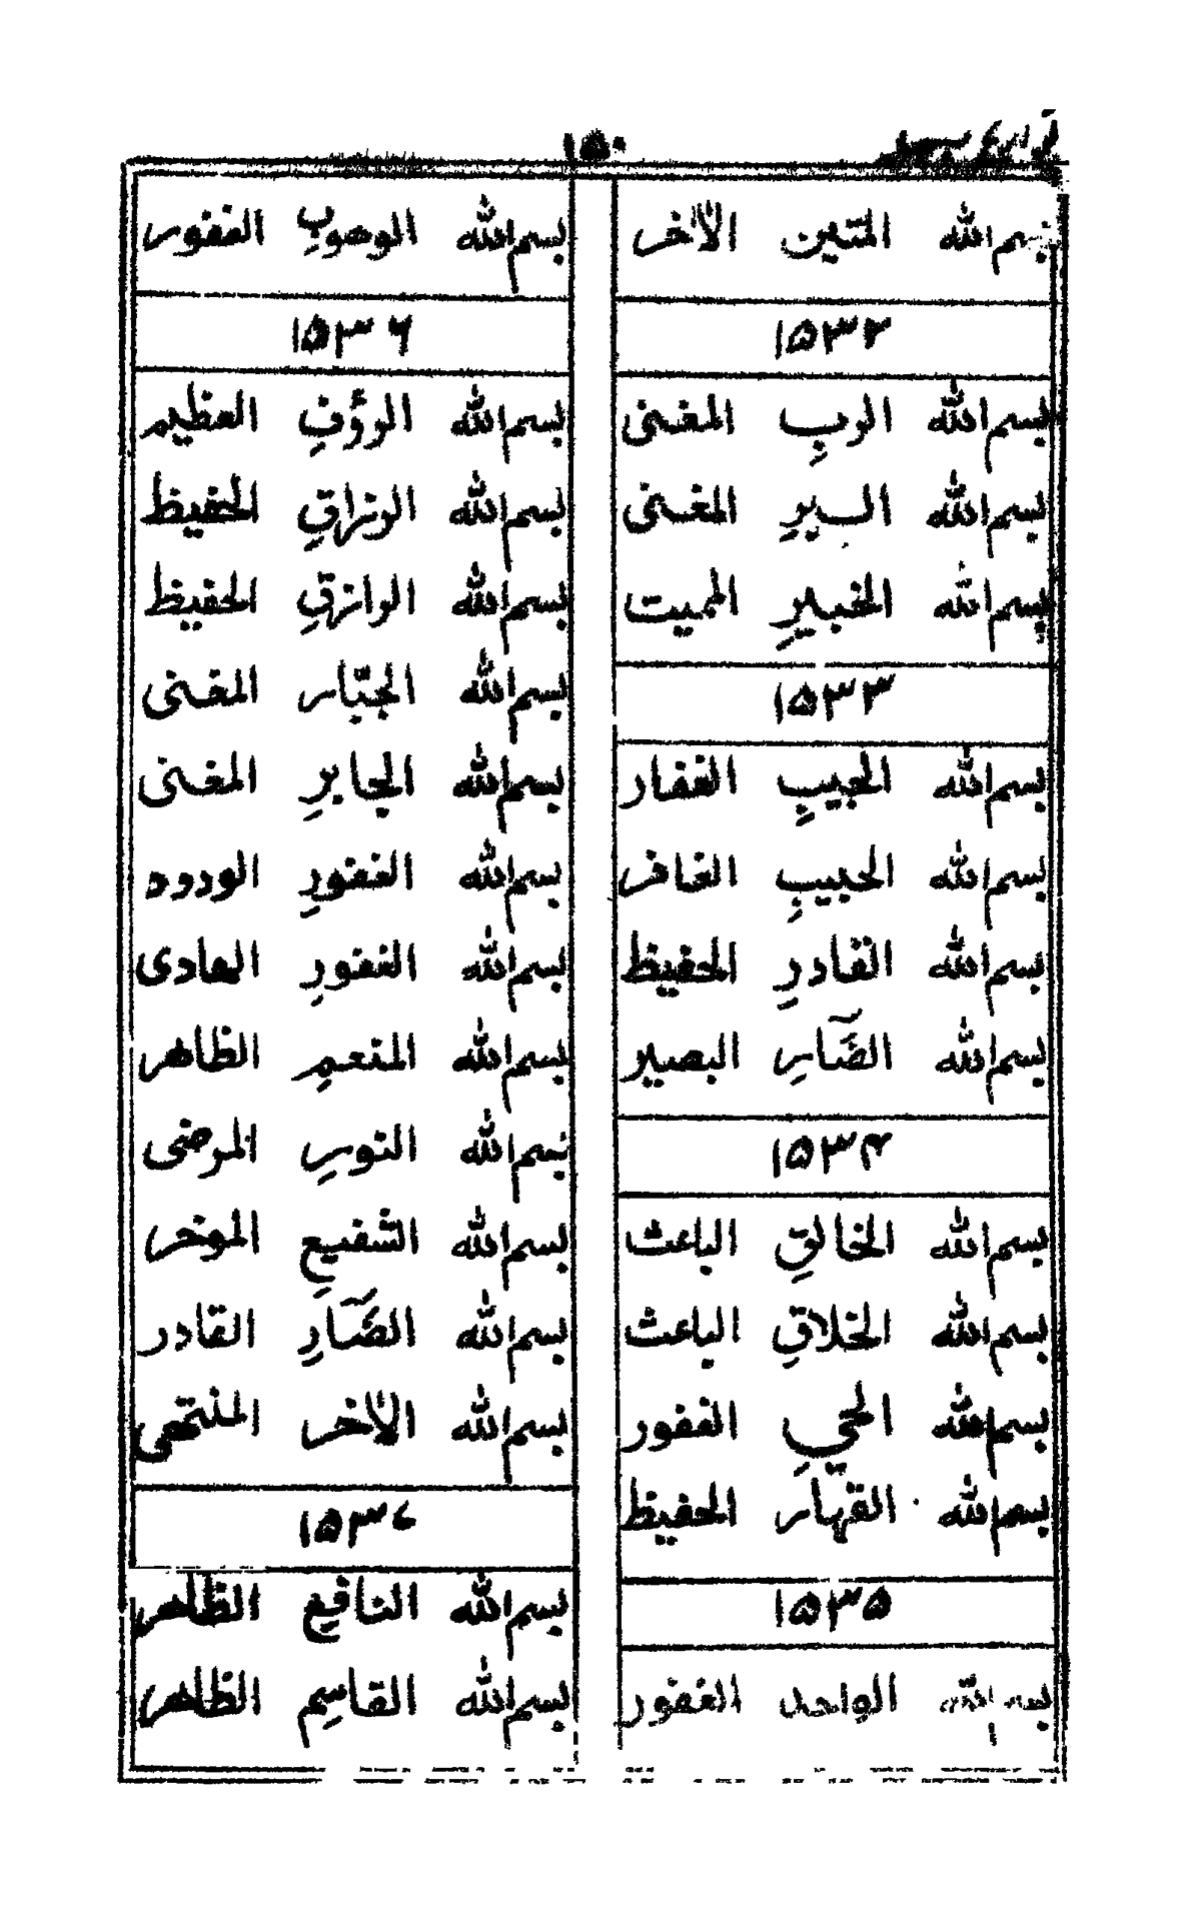 ١٥٠
بسم الله المتين الآخر
١٥٣٢
بسم الله الرب المغنى
بسم الله البرِ المغنى
بسم الله الخبيرِ المميت
١٥٣٣
بسم الله الحبيبِ الغفار
بسم الله الحبيبِ الغافر
بسم الله القادرِ الحفيظ
بسم الله الضَّارِ البصير
١٥٣۴
بسم الله الخالقِ الباعث
بسم الله الخلاقِ الباعث
بسم الله الحيِ الغفور
بسم الله القهّار الحفيظ
١٥٣٥
بسم الله الواحد الغفور
بسم الله الوهوبِ الغفور
١٥٣٦
بسم الله الرؤفِ العظيم
بسم الله الرزاقِ الحفيظ
بسم الله الرازقِ الحفيظ
بسم الله الجبّار المغنى
بسم الله الجابرِ المغنى
بسم الله الغفورِ الودود
بسم الله الغفورِ الهادى
بسم الله المنعمِ الظاهر
بسم الله النورِ المرضى
بسم الله الشفيعِ الموخر
بسم الله الضَّارِ القادر
بسم الله الآخر المنتهى
١٥٣٧
بسم الله النافعِ الظاهر
بسم الله القاسِم الظاهر